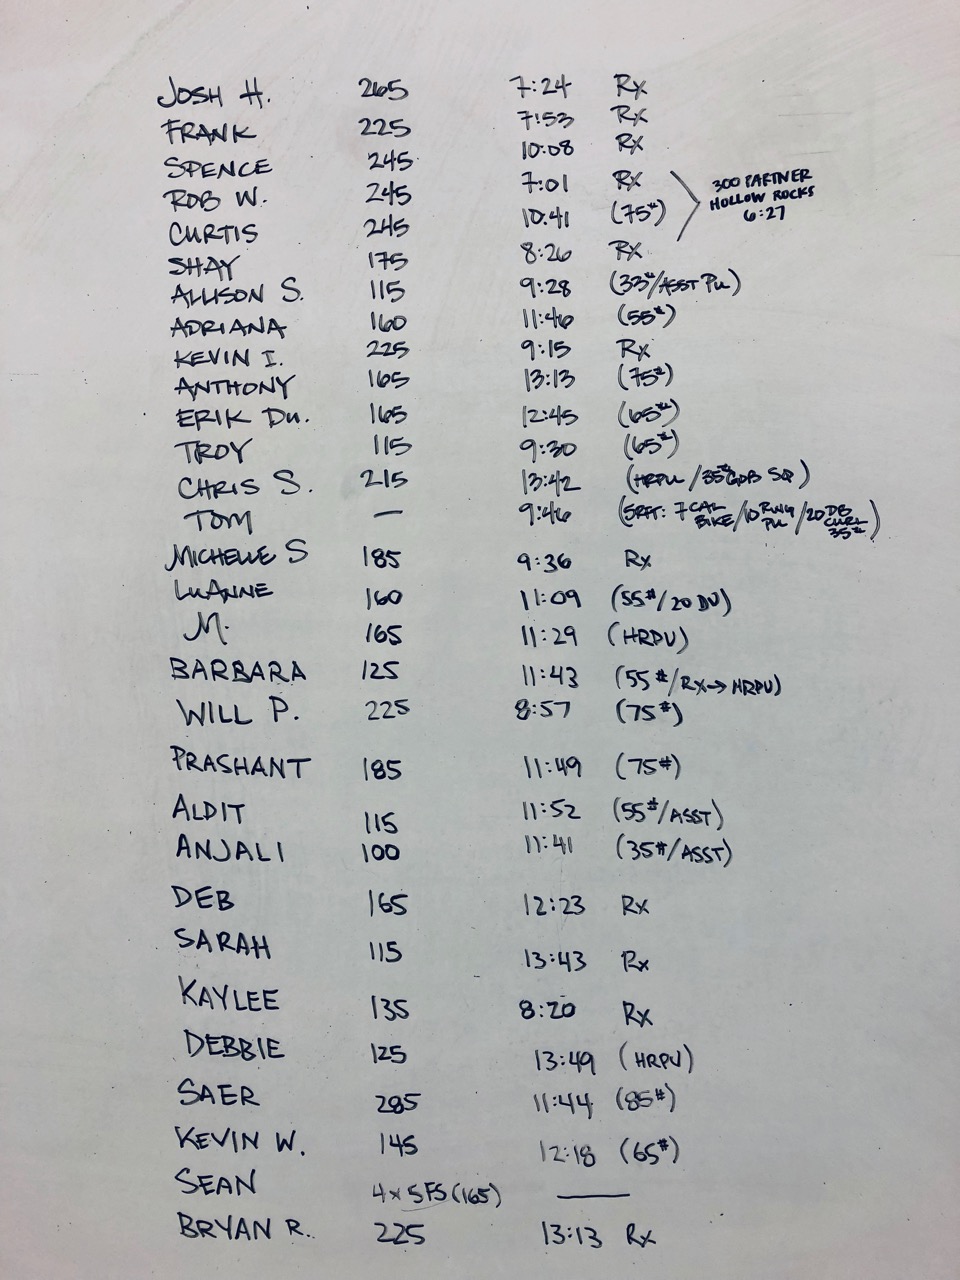 JOSH H. 265 7:24 Rx
FRANK 225 7:53 Rx
SPENCE 245 10:08 Rx
ROB W. 245 7:01 Rx
CURTIS 245 10:41 (75#)
300 PARTNER
HOLLOW ROCKS
6:27
SHAY 175 8:26 Rx
ALLISON S. 115 9:28 (33#/ASST PU)
ADRIANA 160 11:46 (55#)
KEVIN I. 225 9:15 Rx
ANTHONY 165 13:13 (75#)
ERIK DU. 165 12:45 (65#)
TROY 115 9:30 (65#)
CHRIS S. 215 13:42 (HRPU/35# GDB SQ)
TOM — 9:46 (5RFT: 7 CAL BIKE/10 RING PU/20 DB CURL 35#)
MICHELLE S 185 9:36 Rx
LUANNE 160 11:09 (55#/20 DU)
M. 165 11:29 (HRPU)
BARBARA 125 11:43 (55#/RX→HRPU)
WILL P. 225 8:57 (75#)
PRASHANT 185 11:49 (75#)
ALDIT 115 11:52 (55#/ASST)
ANJALI 100 11:41 (35#/ASST)
DEB 165 12:23 Rx
SARAH 115 13:43 Rx
KAYLEE 135 8:20 Rx
DEBBIE 125 13:49 (HRPU)
SAER 285 11:44 (85#)
KEVIN W. 145 12:18 (65#)
SEAN 4x5FS(165) —
BRYAN R. 225 13:13 Rx